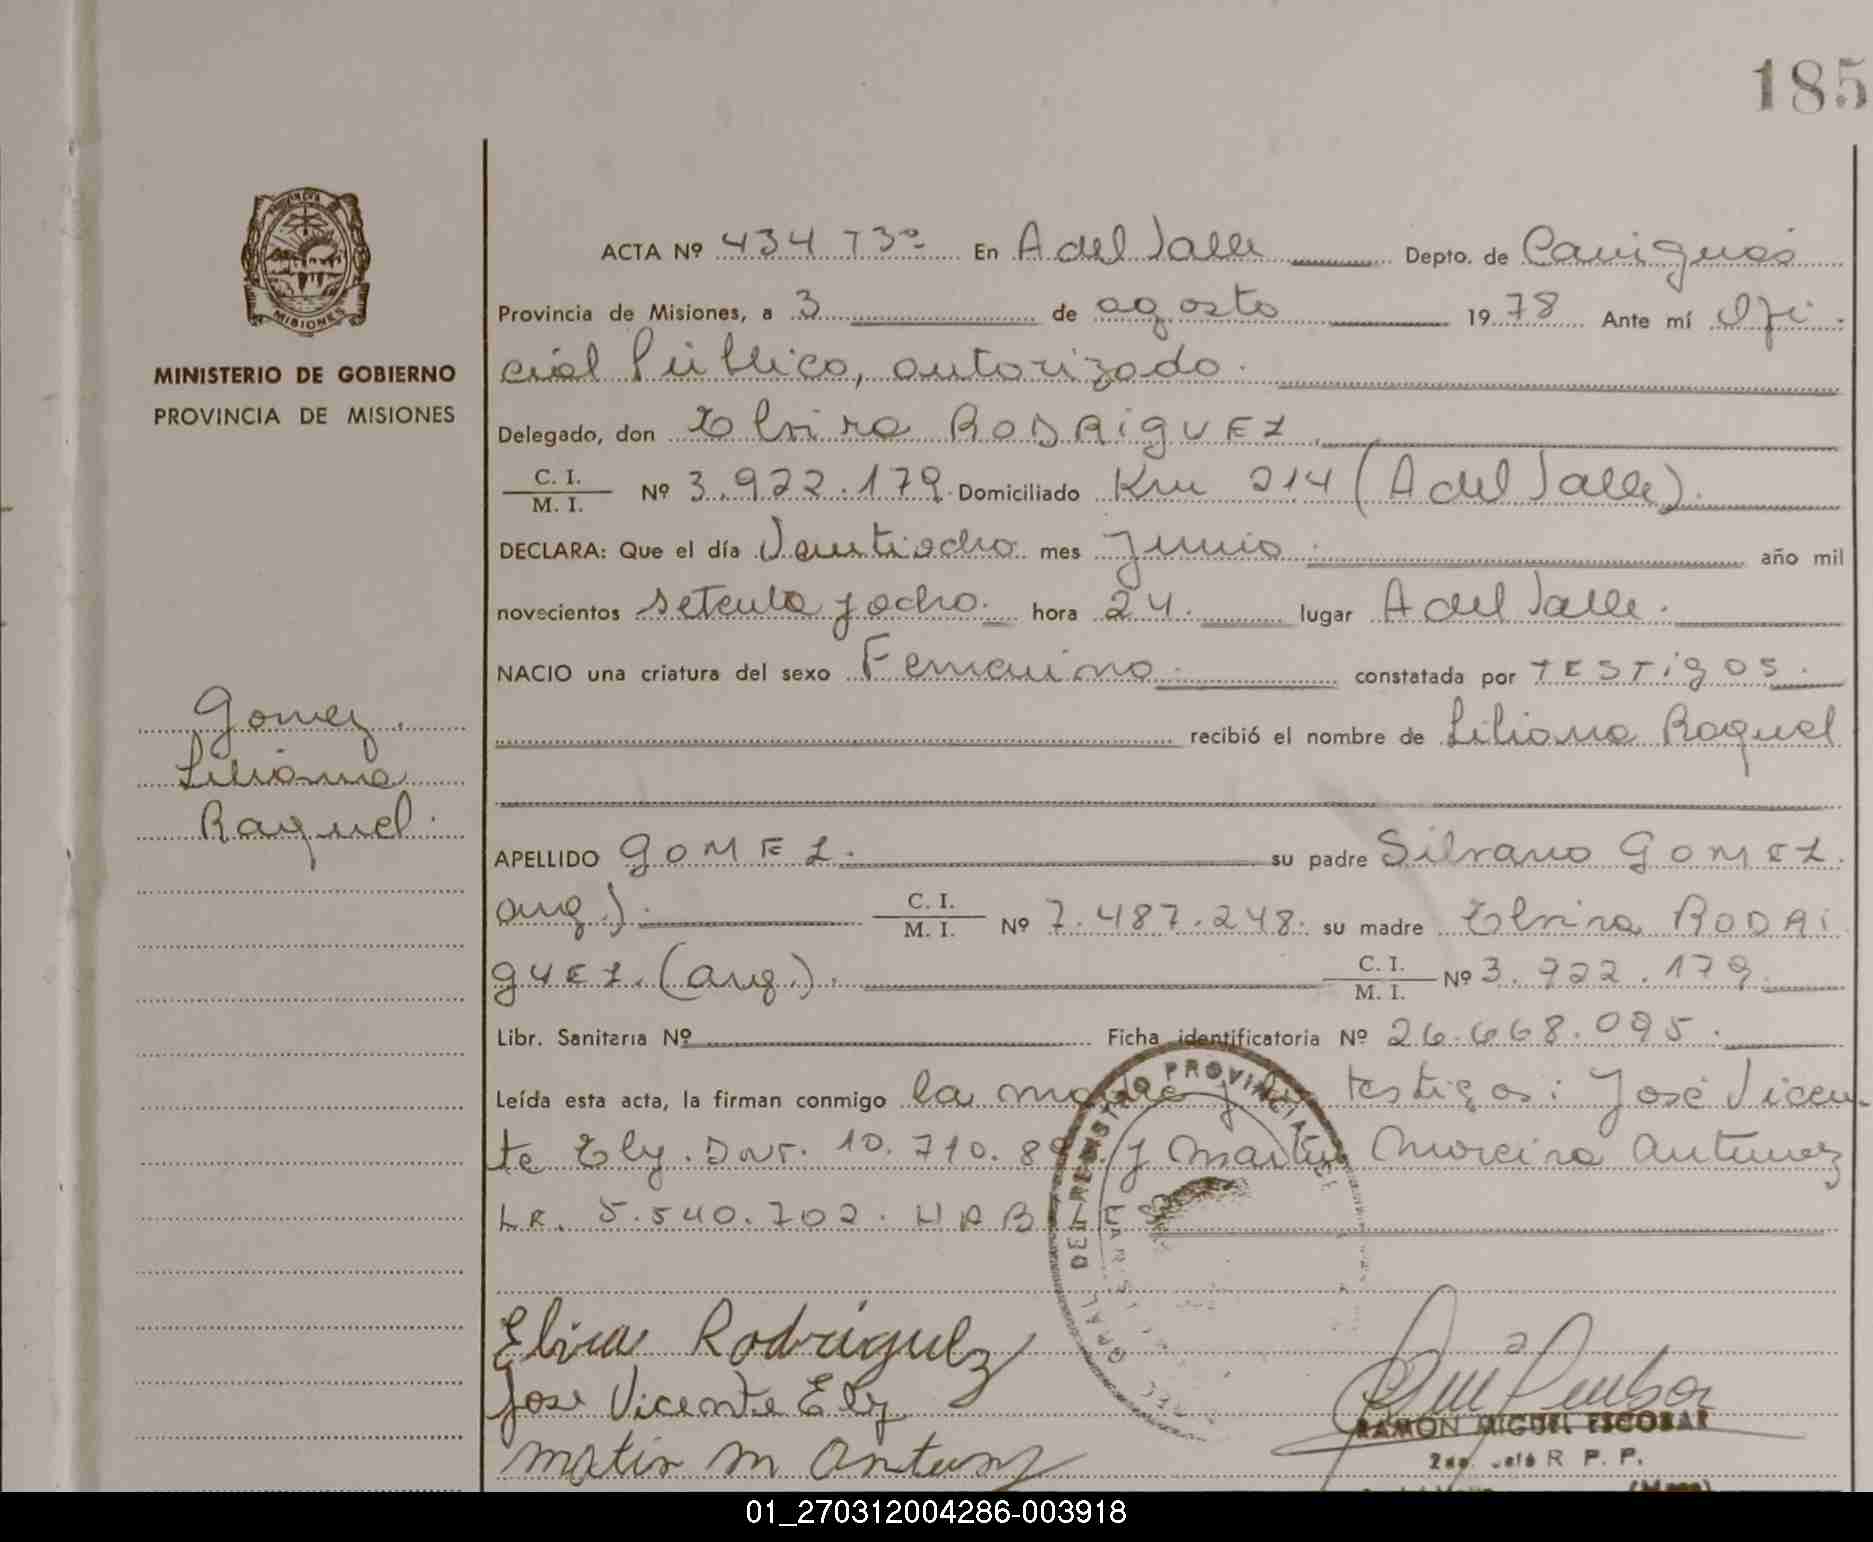 185
ACTA Nº 434 T3º En A del Valle Depto. de Cainguás
Provincia de Misiones, a 3 de agosto 1978 Ante mí Ofi-
cial Público, autorizado.
MINISTERIO DE GOBIERNO
PROVINCIA DE MISIONES
Delegado, don Elvira RODRIGUEZ
C. I.
M. I. Nº 3.922.179. Domiciliado Km 214 (A del Valle).
DECLARA: Que el día Veintiocho mes Junio año mil
novecientos setenta y ocho. hora 24. lugar A del Valle.
NACIO una criatura del sexo Femenino. constatada por TESTigOS.
recibió el nombre de Liliana Raquel
Gomez.
Liliana
Raquel.
APELLIDO gOMEZ. su padre Silvano gOMEZ.
arg.). C. I.
M. I. Nº 7.487.248. su madre Elvira RODRi
gUEZ. (arg.). C. I.
M. I. Nº 3.922.179.
Libr. Sanitaria Nº Ficha identificatoria Nº 26.668.095.
Leída esta acta, la firman conmigo la madre y los testigos: José Vicen-
te Ely. DNI. 10.710.89 y Martin Moreira Antunez
LE. 5.540.702. HAB
DEL REGISTRO PROVINCIAL
MISIONES
Elvira Rodriguez
Jose Vicente Ely
matin m antunz
RAMON MIGUEL ESCOBAR
R. P. P.
01_270312004286-003918